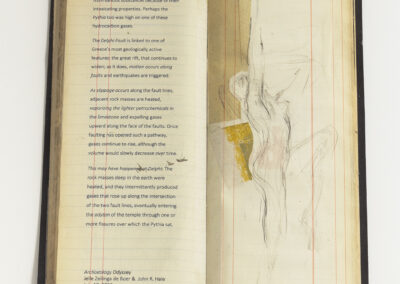 intoxicating properties. Perhaps the
Pythia too was high on one of these
hydrocarbon gases.
The Delphi Fault is linked to one of
Greece's most geologically active
features: the great rift, that continues to
widen; as it does, motion occurs along
faults and earthquakes are triggered.
As slippage occurs along the fault lines,
adjacent rock masses are heated,
vaporizing the lighter petrochemicals in
the limestone and expelling gases
upward along the face of the faults. Once
faulting has opened such a pathway,
gases continue to rise, although the
volume would slowly decrease over time.
This may have happened at Delphi. The
rock masses deep in the earth were
heated, and they intermittently produced
gases that rose up along the intersection
of the two fault lines, eventually entering
the adyton of the temple through one or
more fissures over which the Pythia sat.
Archaeology Odyssey
Jelle Zeilinga de Boer & John R. Hale